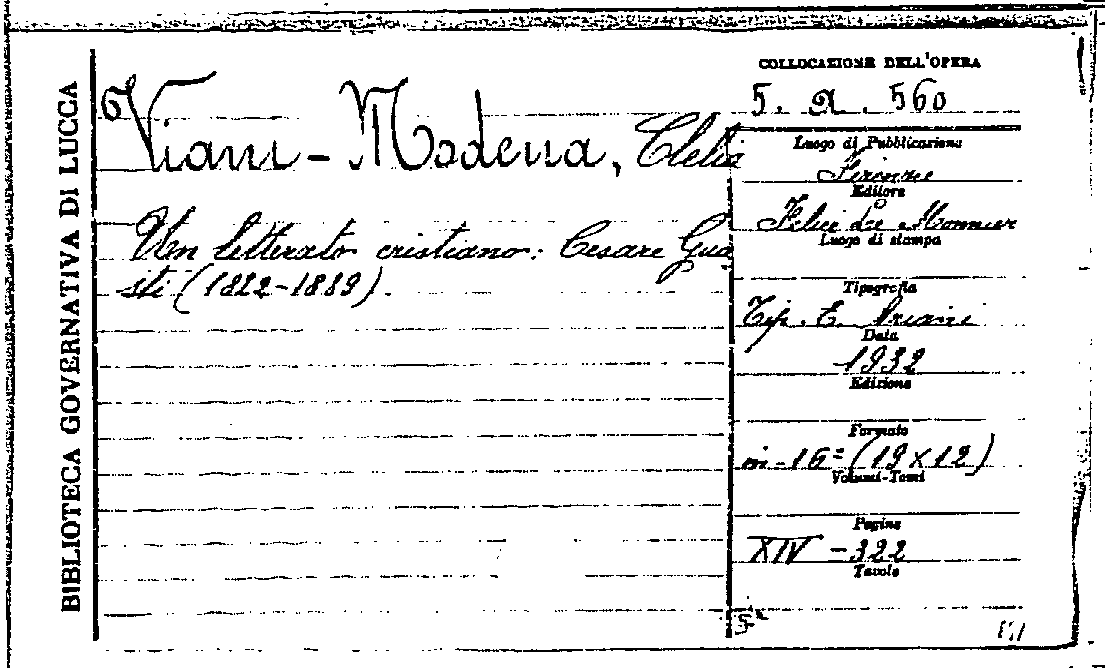 BIBLIOTECA GOVERNATIVA DI LUCCA
Viani-Modena, Clelia
Un letterato cristiano: Cesare Gua
sti (1822-1889).
COLLOCAZIONE DELL'OPERA
5. a. 560
Luogo di Pubblicazione
Firenze
Editore
Felice Le Monnier
Luogo di stampa
Tipografia
Tip. E. Ariani
Data
1932
Edizione
Formato
in-16° (19×12)
Volumi-Tomi
Pagine
XIV-322
Tavole